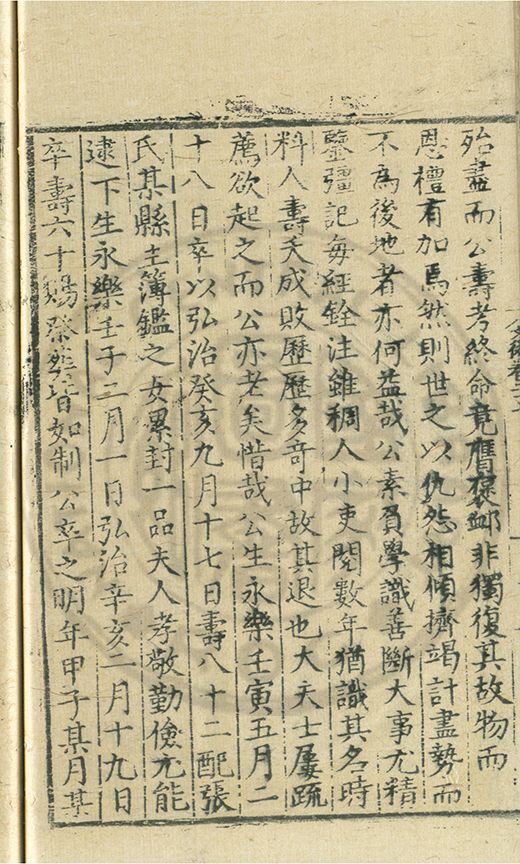 殆盡而公壽考終命竟膺褒䘏非獨復其故物而
恩禮有加焉然則世之以仇怨相傾擠竭計盡勢而
不為後地者亦何益哉公素負學識善斷大事尤精
鑒彊記每經銓注雖稠人小吏閱數年猶識其名時
料人壽夭成敗歷歷多奇中故其退也大夫士屢疏
薦欲起之而公亦老矣惜哉公生永樂壬寅五月二
十八日卒以弘治癸亥九月十七日壽八十二配張
氏某縣主簿鑑之女累封一品夫人孝敬勤儉尤能
逮下生永樂壬子二月一日弘治辛亥二月十九日
卒壽六十賜祭塟皆如制公卒之明年甲子某月某